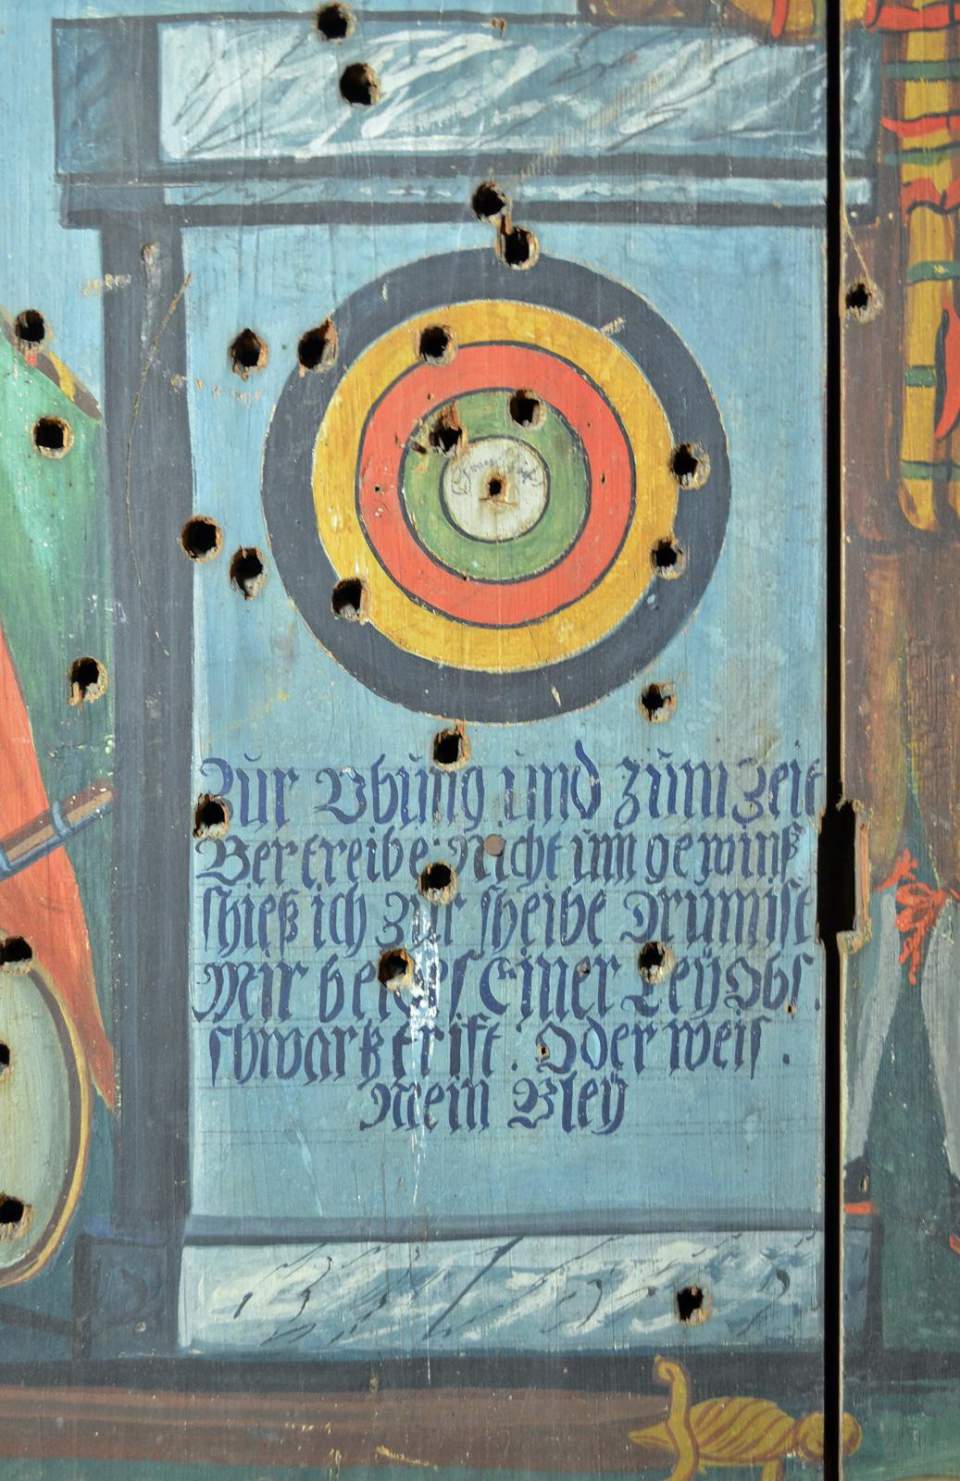 Zur Vbung und zum Zeit
Vertreibe Nicht um gewinß
schieß ich Zur scheibe Drum ist
Mir beides Einer Leÿ Obs.
schwartz trift. Oder weis.
Mein Bleÿ